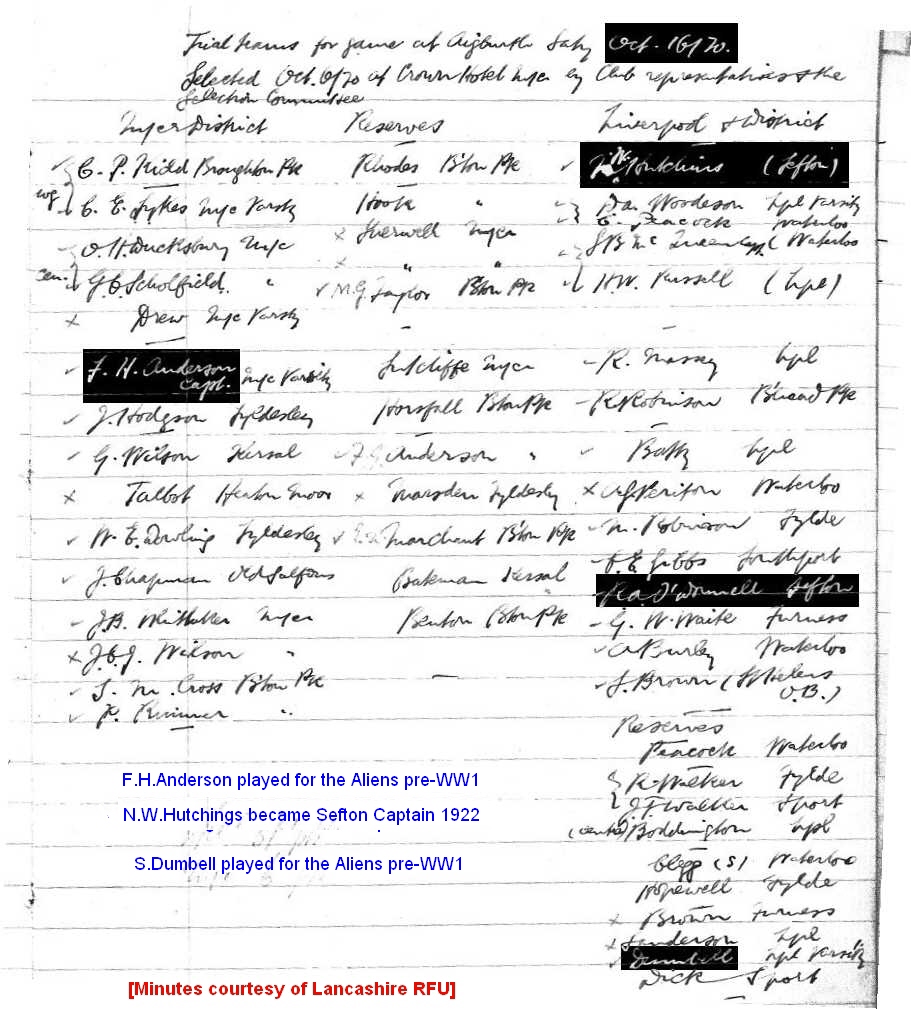 Trial teams for game at Aigburth Saty Oct. 16/20.
Selected Oct. 6/20 at Crown Hotel M/cr by Club representatives & the
Selection Committee
M/cr District Reserves Liverpool & District
C. P. Kidd Broughton Pk Rhodes B'ton Pk N.W. Hutchins (Sefton)
wg C. E. Sykes M/c Varsty Hook " Da. Woodeson Lpl Varsity
C. Peacock Waterloo
O. H. Ducksbury M/c × Sherwell M/cr J B Mc Queen Capt. (Waterloo
cen. G. C. Scholfield. " × " " M. G. Taylor B'ton Pk H. W. Russell (Lpl)
× Drew M/c Varsty
F. H. Anderson Capt. M/c Varsity Sutcliffe M/cr R. Massey Lpl
J. Hodgson Tyldesley Horsfall B'ton Pk R. Robinson B'head Pk
G. Wilson Kersal F. G. Anderson " Batty Lpl
× Talbot Heaton Moor × Marsden Tyldesley × Waterloo
W. E. Dowling Tyldesley Marchant B'ton Pk M. Robinson Fylde
J. Chapman Old Salfons Bateman Kersal F. E. Gibbs Southport
R.a. O'Donnell Sefton
J. B. Whittaker M/cr Benton B'ton Pk G. W. Waite Furness
× J. E. J. Wilson " A Burley Waterloo
S. M. Cross B'ton Pk J. Brown (St Helens
O.B.)
P. Rimmer "
Reserves
Peacock Waterloo
R. Walker Fylde
J. F. Walker S'port
(centre) Boddington Lpl
Clegg (S) Waterloo
Hopewell Fylde
× Brown Furness
× Sanderson Lpl
Dumbell Lpl Varsity
Dick S'port
F.H.Anderson played for the Aliens pre-WW1
N.W.Hutchings became Sefton Captain 1922
S.Dumbell played for the Aliens pre-WW1
[Minutes courtesy of Lancashire RFU]